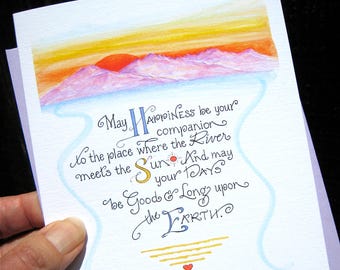 May Happiness be your
companion
To the place where the River
meets the Sun. And may
your Days
be Good & Long upon
the Earth.